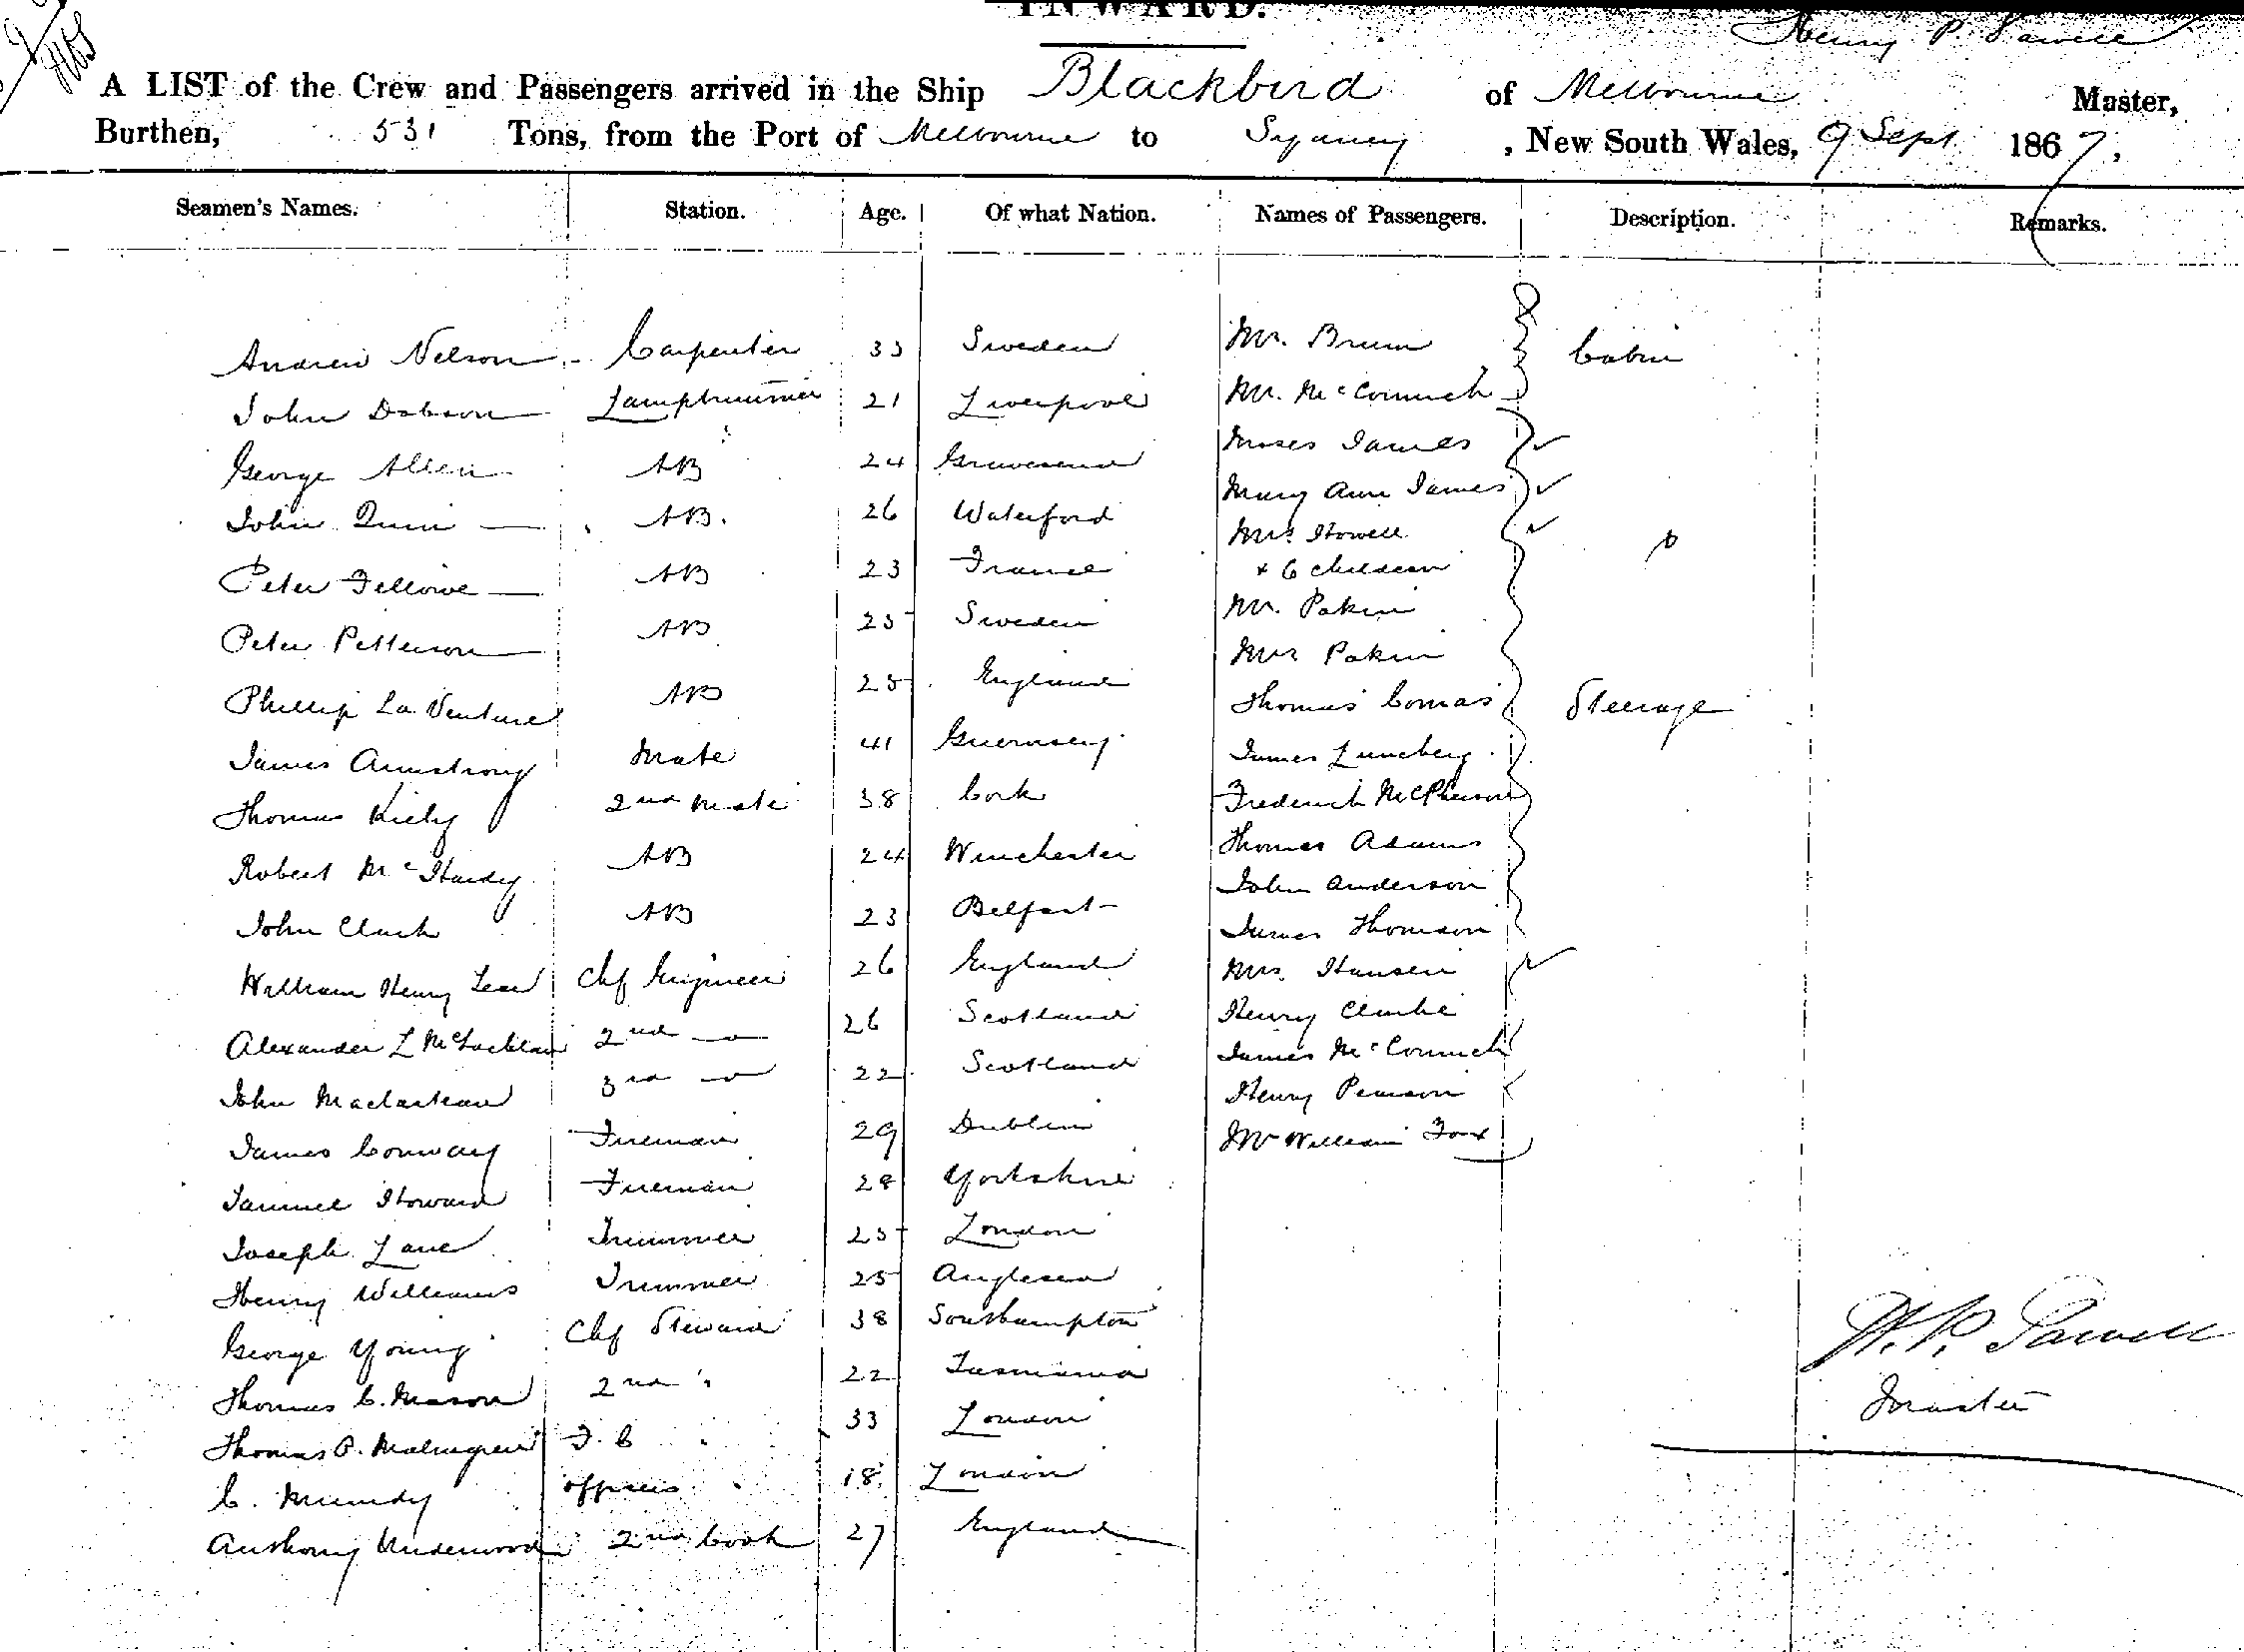 INWARD.
Henry P.
A LIST of the Crew and Passengers arrived in the Ship Blackbird of Melbourne Master,
Burthen, 531 Tons, from the Port of Melbourne to Sydney, New South Wales, 9 Sept 1867,
Seamen's Names. Station. Age. Of what Nation. Names of Passengers. Description. Remarks.
Andrew Nelson Carpenter Sweden Mr. Cabin
John Dobson Lamptrimmer 21 Liverpool Mr. McCormick
George Allen AB 24 Gravesend Moses James
John Quin AB. 26 Waterford Mary Ann James
Peter Fellowe AB 23 France Mrs Howell
+ 6 children
Peter Petterson AB 25 Sweden Mr. Pakin
Mrs Pakin
Phillip La Venture AB 25 England Thomas Comas Steerage
James Armstrong Mate 41 Guernsey James
Thomas Kiely 2nd Mate 38 Cork Frederick McPherson
Robert McHardy AB 24 Winchester Thomas Adams
John Anderson
John Clark AB 23 Belfast James Thomson
William Henry Chf Engineer 26 England Mrs. Hansen
Alexander L McLachlan 2nd do 26 Scotland Henry Clarke
John 3rd do 22 Scotland James McCormick
Henry Pearson
James Conway Fireman 29 Dublin Mr William Fox
Samuel Howard Fireman 28 Yorkshire
Joseph Lane Trimmer 25 London
Henry Williams Trimmer 25 Anglesea
George Young Chf Steward 38 Southampton
Thomas C. Mason 2nd " 22 Tasmania
Thomas P. Malmgren F. C " 33 London
C. Mundy Officers " 18 London
Anthony Underwood 2nd Cook 27 England
H. P.
Master